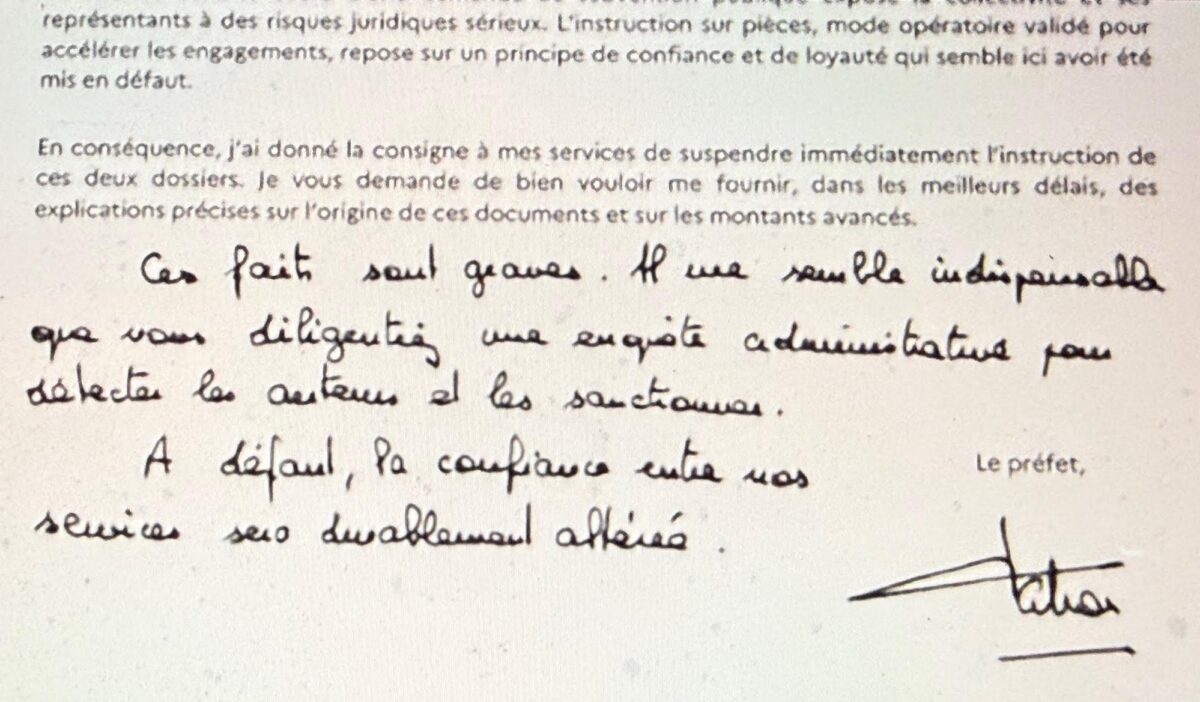 représentants à des risques juridiques sérieux. L'instruction sur pièces, mode opératoire validé pour
accélérer les engagements, repose sur un principe de confiance et de loyauté qui semble ici avoir été
mis en défaut.
En conséquence, j'ai donné la consigne à mes services de suspendre immédiatement l'instruction de
ces deux dossiers. Je vous demande de bien vouloir me fournir, dans les meilleurs délais, des
explications précises sur l'origine de ces documents et sur les montants avancés.
Ces faits sont graves. Il me semble indispensable
que vous diligentiez une enquête administrative pour
détecter les auteurs et les sanctionner.
A défaut, la confiance entre nos
services sera durablement altérée.
Le préfet,